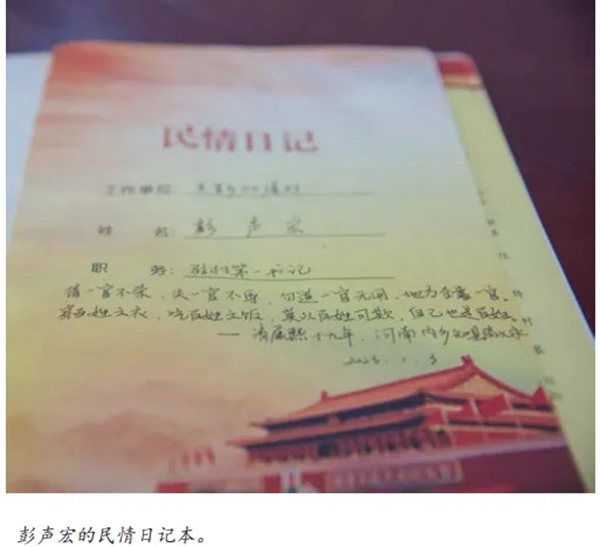 民情日记
工作单位:
姓 名: 彭声宏
职 务: 驻村第一书记
得一官不荣，失一官不辱，勿道一官无用，地方全靠一官。
穿百姓之衣，吃百姓之饭，莫以百姓可欺，自己也是百姓。
——清康熙十九年，河南内乡知县高以永
彭声宏的民情日记本。